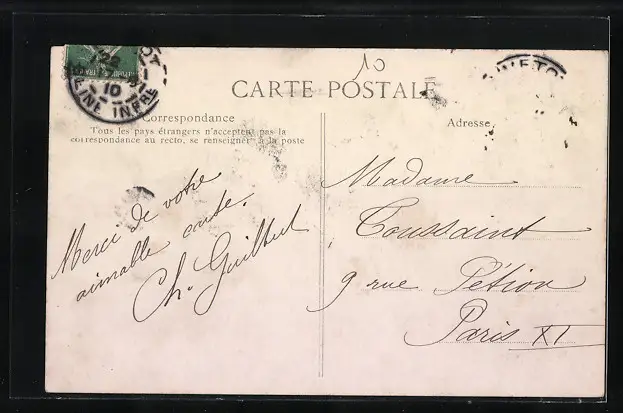 10
CARTE POSTALE
Correspondance
Tous les pays étrangers n'acceptent pas la
correspondance au recto, se renseigner à la poste
Adresse
Merci de votre
aimable carte.
Ch. Guilbert
Madame
Toussaint
9 rue Pétion
Paris XI
22
10
SEINE INFRE